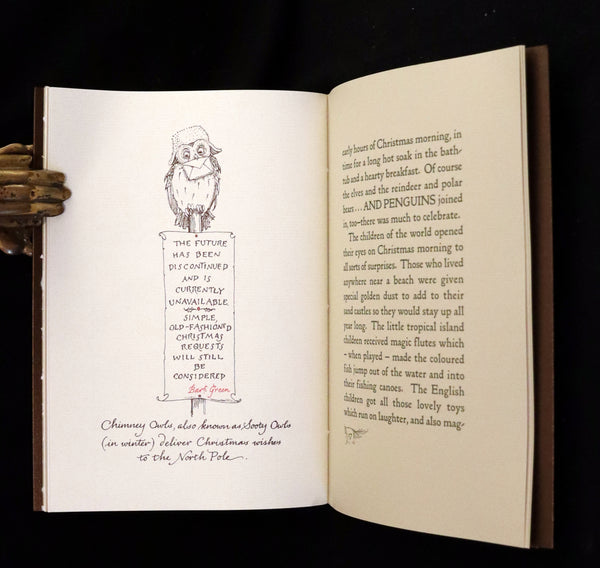 THE FUTURE
HAS BEEN
DISCONTINUED
AND IS
CURRENTLY
UNAVAILABLE
SIMPLE,
OLD-FASHIONED
CHRISTMAS
REQUESTS
WILL STILL
BE
CONSIDERED
Bark Green
Chimney Owls, also known as Sooty Owls
(in winter) deliver Christmas wishes
to the North Pole.
early hours of Christmas morning, in
time for a long hot soak in the bath-
tub and a hearty breakfast. Of course
the elves and the reindeer and polar
bears . . . AND PENGUINS joined
in, too–there was much to celebrate.
The children of the world opened
their eyes on Christmas morning to
all sorts of surprises. Those who lived
anywhere near a beach were given
special golden dust to add to their
sand castles so they would stay up all
year long. The little tropical island
children received magic flutes which
– when played – made the coloured
fish jump out of the water and into
their fishing canoes. The English
children got all those lovely toys
which run on laughter, and also mag-